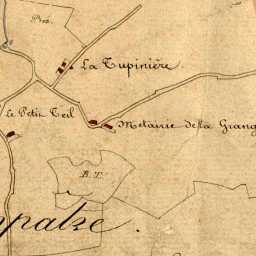 Prés
La Tupinière
Le Petit Teil
Métairie de la Grang
B. T.
mpalze.